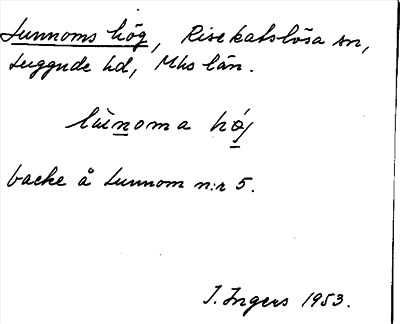 Lunnoms hög, Risekatslösa sn,
Luggude hd, Mhs län.
lùnoma hø/
backe å Lunnom n:r 5.
I. Ingers 1953.